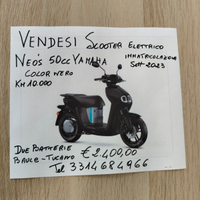 VENDESI SCOOTER ELETTRICO
NEO'S 50cc YAMAHA IMMATRICOLAZIONE
COLOR NERO SETT 2023
KM 10.000
DUE BATTERIE € 2.400,00
PAULLO-TUCANO
Tel 3314684966